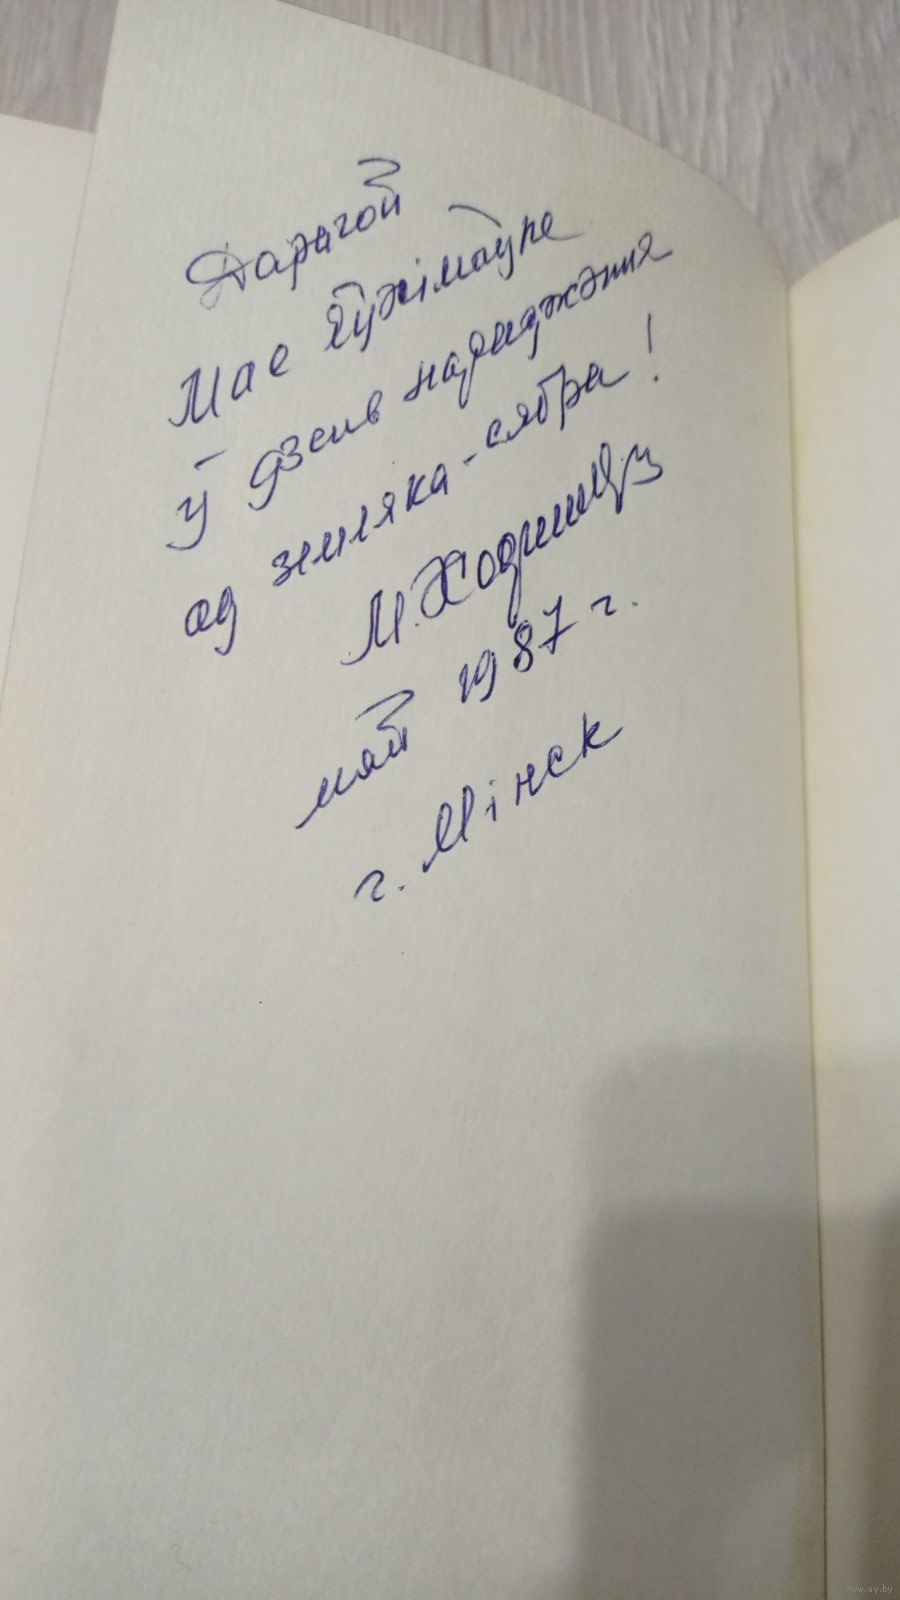 Дарагой
Мае Яўхімаўне
ў дзень нараджэння
ад земляка-сябра!
май 1987 г.
г. Мінск
www.ay.by